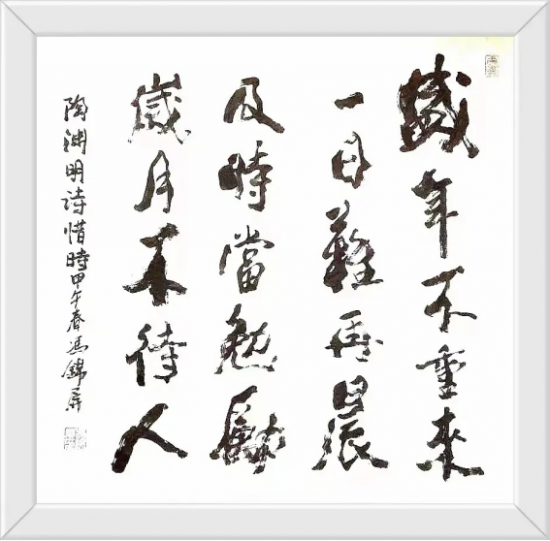 盛年不重來
一日難再晨
及時當勉勵
歲月不待人
陶渊明诗惜時甲午春冯錦屏